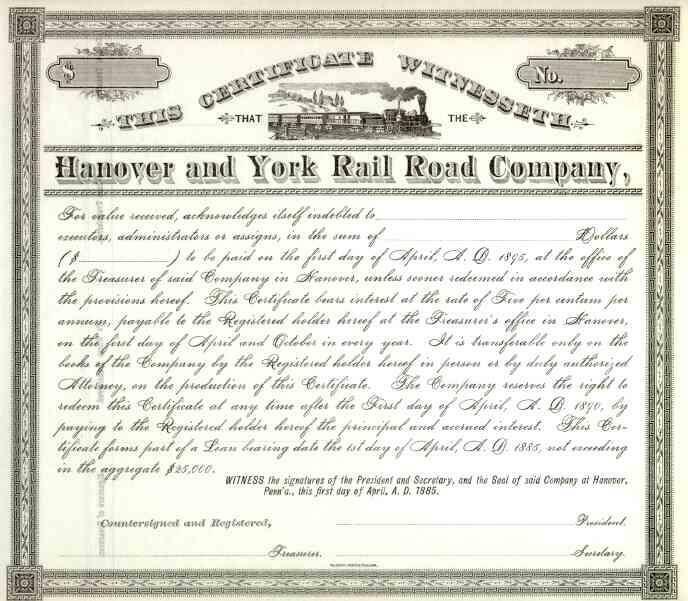 $
No.
THIS CERTIFICATE WITNESSETH
THAT THE
Hanover and York Rail Road Company,
For value received, acknowledges itself indebted to
executors, administrators or assigns, in the sum of Dollars
($ ) to be paid on the first day of April, A. D. 1895, at the office of
the Treasurer of said Company in Hanover, unless sooner redeemed in accordance with
the provisions hereof. This Certificate bears interest at the rate of Five per centum per
annum, payable to the Registered holder hereof at the Treasurer's office in Hanover,
on the first day of April and October in every year. It is transferable only on the
books of the Company by the Registered holder hereof in person or by duly authorized
Attorney, on the production of this Certificate. The Company reserves the right to
redeem this Certificate at any time after the First day of April, A. D. 1890, by
paying to the Registered holder hereof the principal and accrued interest. This Cer-
tificate forms part of a Loan bearing date the 1st day of April, A. D. 1885, not exceeding
in the aggregate $25,000.
WITNESS the signatures of the President and Secretary, and the Seal of said Company at Hanover,
Penn'a., this first day of April, A. D. 1885.
Countersigned and Registered,
President.
Treasurer.
Secretary.